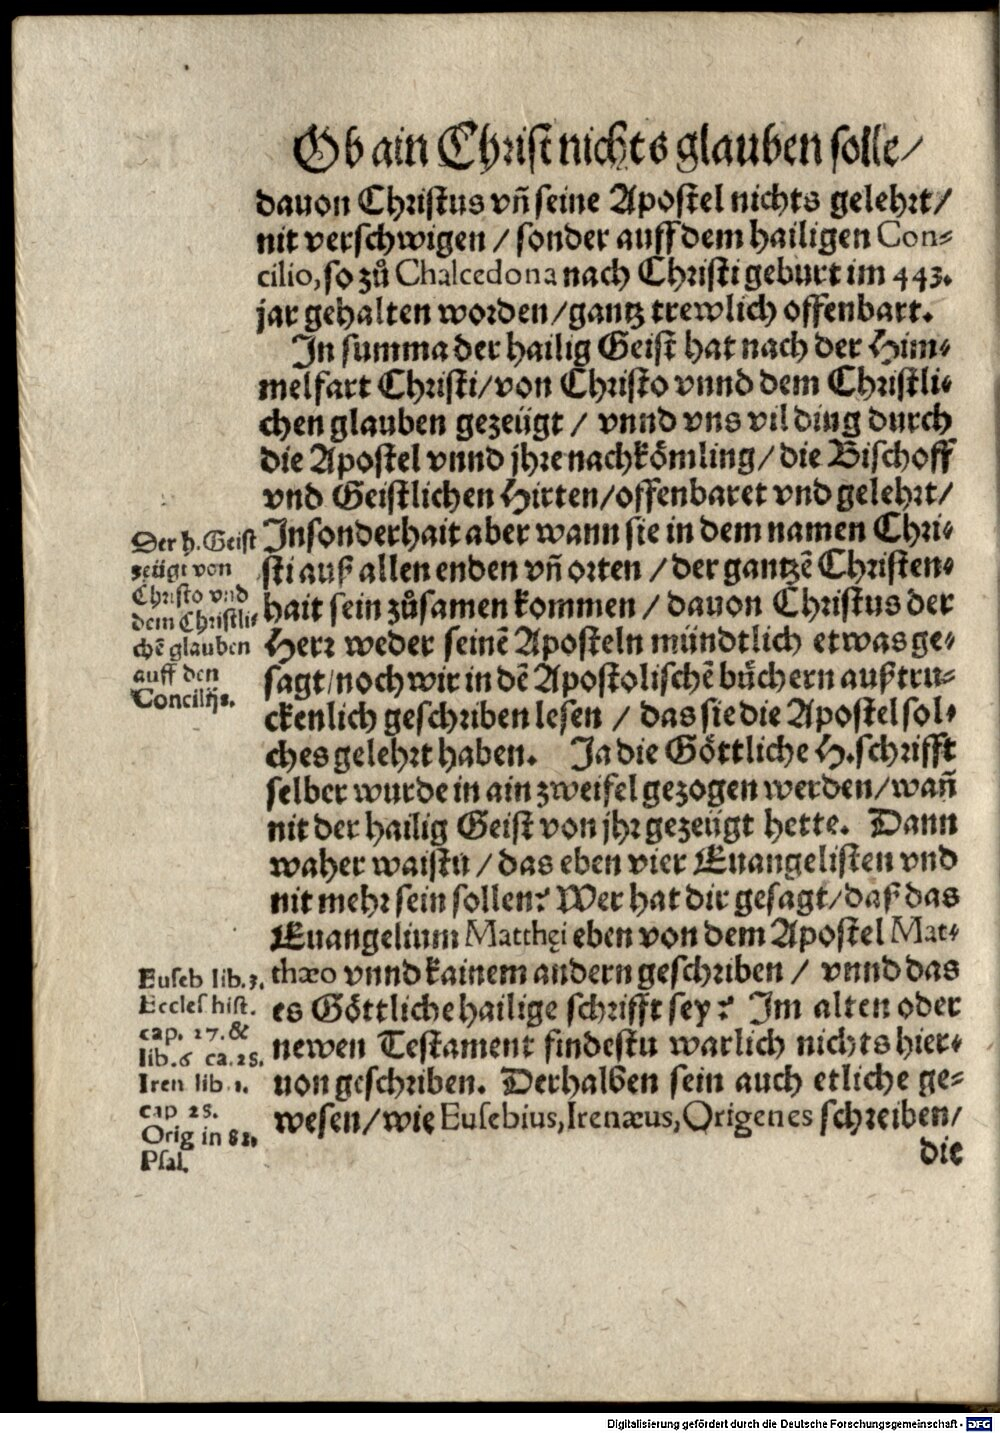 Ob ain Christ nichts glauben solle/
dauon Christus vñ seine Apostel nichts gelehrt/
nit verschwigen / sonder auff dem hailigen Con-
cilio, so zů Chalcedona nach Christi geburt im 443.
jar gehalten worden/gantz trewlich offenbart.
In summa der hailig Geist hat nach der Him-
melfart Christi/von Christo vnnd dem Christli-
chen glauben gezeügt / vnnd vns vil ding durch
die Apostel vnnd jhre nachkömling/die Bischoff
vnd Geistlichen Hirten/offenbaret vnd gelehrt/
Insonderhait aber wann sie in dem namen Chri-
sti auß allen enden vñ orten / der gantzē Christen-
hait sein zůsamen kommen / dauon Christus der
Herr weder seinē Aposteln mündtlich etwas ge-
sagt/noch wir in dē Apostolischē bůchern außtru-
ckenlich geschriben lesen / das sie die Apostel sol-
ches gelehrt haben. Ja die Göttliche H. schrifft
selber wurde in ain zweifel gezogen werden/wañ
nit der hailig Geist von jhr gezeügt hette. Dann
waher waistu / das eben vier Euangelisten vnd
nit mehr sein sollen? Wer hat dir gesagt/daß das
Euangelium Matthęi eben von dem Apostel Mat-
thæo vnnd kainem andern geschriben / vnnd das
es Göttliche hailige schrifft sey? Im alten oder
newen Testament findestu warlich nichts hier-
uon geschriben. Derhalben sein auch etliche ge-
wesen/wie Eusebius, Irenæus, Origenes schreiben/
die
Der h. Geist
zeügt von
Christo vnd
dem Christli-
chē glauben
auff den
Concilijs.
Euseb lib. 3.
Eccles hist.
cap. 17. &
lib. 6 ca. 25.
Iren lib. 1.
cap 25.
Orig in 82.
Psal.
Digitalisierung gefördert durch die Deutsche Forschungsgemeinschaft - DFG